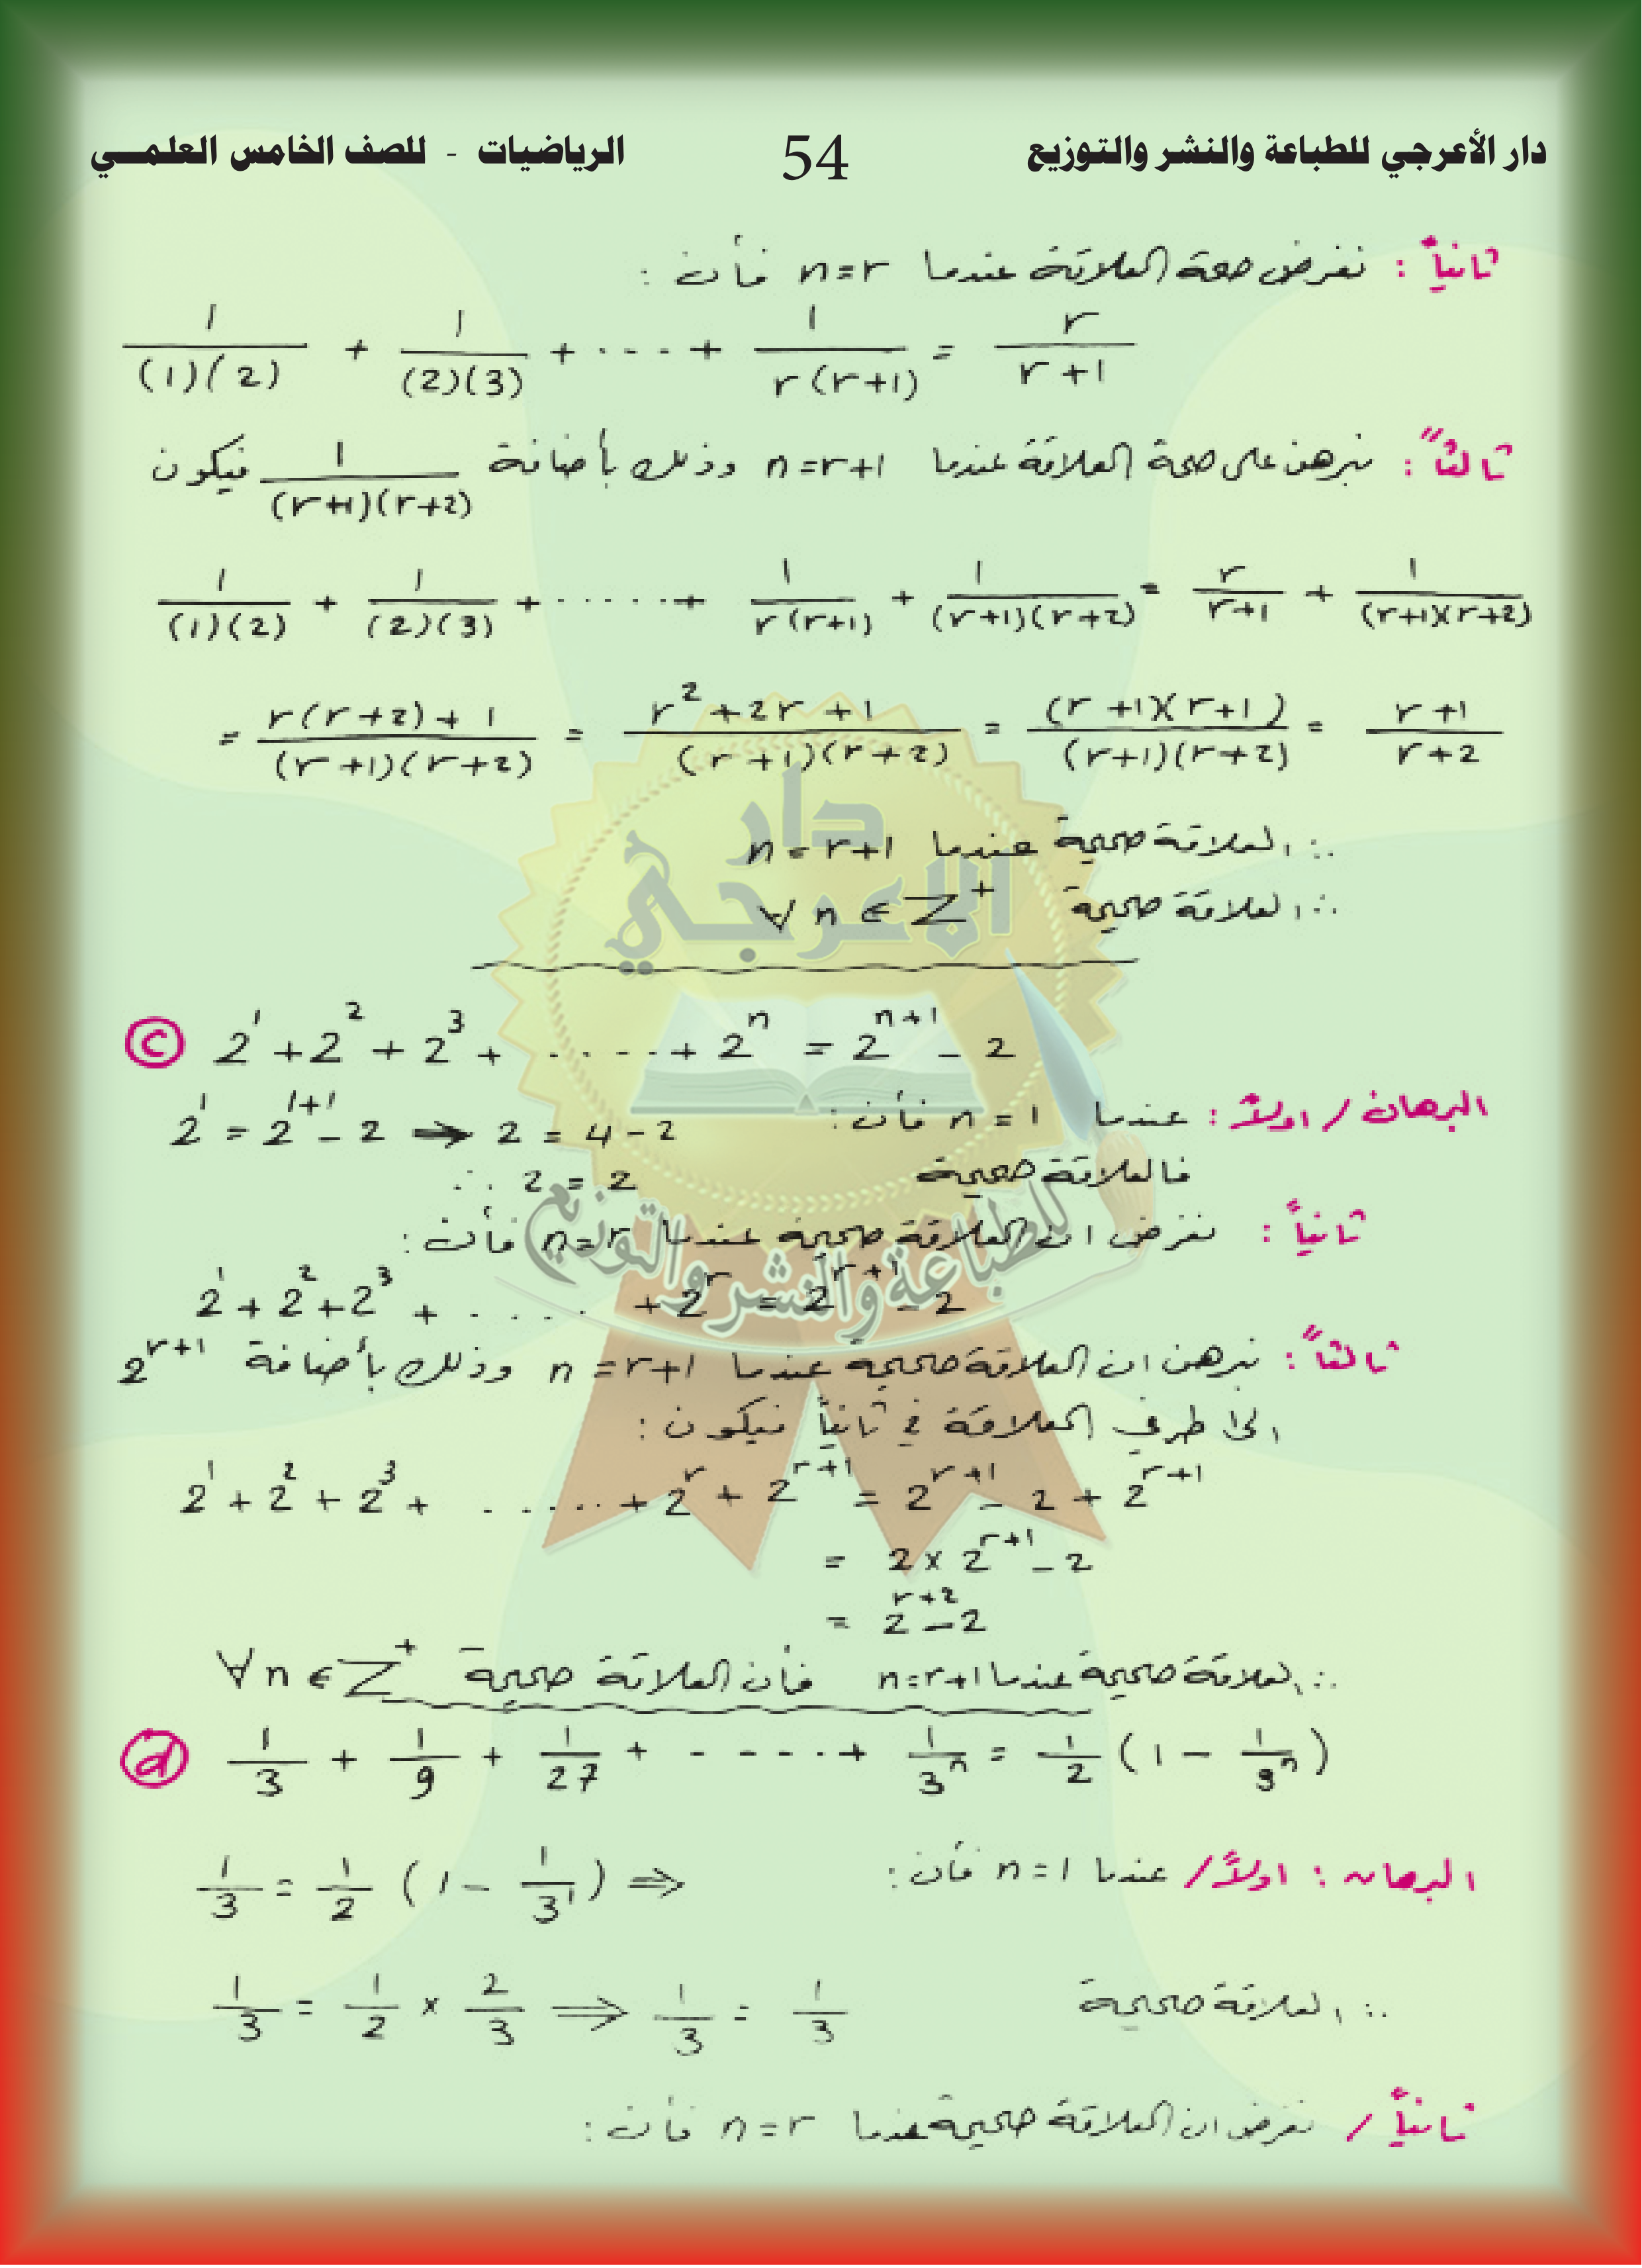 دار الأعرجي للطباعة والنشر والتوزيع 54 الرياضيات - للصف الخامس العلمـــي
ثانياً : نفرض صحة العلاقة عندما n=r فأن :
1/(1)(2) + 1/(2)(3) + ... + 1/r(r+1) = r/r+1
ثالثاً : نبرهن على صحة العلاقة عندما n=r+1 وذلك بأضافة 1/(r+1)(r+2) فيكون
1/(1)(2) + 1/(2)(3) + ...... + 1/r(r+1) + 1/(r+1)(r+2) = r/r+1 + 1/(r+1)(r+2)
= r(r+2)+1/(r+1)(r+2) = r²+2r+1/(r+1)(r+2) = (r+1)(r+1)/(r+1)(r+2) = r+1/r+2
∴ العلاقة صحيحة عندما n=r+1
∴ العلاقة صحيحة ∀ n ∈ Z⁺
دار
الاعرجي
ⓒ 2¹ + 2² + 2³ + ..... + 2ⁿ = 2ⁿ⁺¹ - 2
البرهان / اولاً : عندما n = 1 فأن : 2¹ = 2¹⁺¹ - 2 → 2 = 4 - 2
فالعلاقة صحيحة ∴ 2 = 2
للطباعة والنشر والتوزيع
ثانياً : نفرض ان العلاقة صحيحة عندما n=r فأن :
2¹ + 2² + 2³ + .... + 2ʳ = 2ʳ⁺¹ - 2
ثالثاً : نبرهن ان العلاقة صحيحة عندما n=r+1 وذلك بأضافة 2ʳ⁺¹
الى طرفي العلاقة في ثانياً فيكون :
2¹ + 2² + 2³ + ..... + 2ʳ + 2ʳ⁺¹ = 2ʳ⁺¹ - 2 + 2ʳ⁺¹
= 2 × 2ʳ⁺¹ - 2
= 2ʳ⁺² - 2
∴ العلاقة صحيحة عندما n=r+1 فأن العلاقة صحيحة ∀ n ∈ Z⁺
ⓓ 1/3 + 1/9 + 1/27 + ..... + 1/3ⁿ = 1/2 (1 - 1/3ⁿ)
البرهان : اولاً / عندما n=1 فأن : 1/3 = 1/2 (1 - 1/3¹) ⇒
∴ العلاقة صحيحة 1/3 = 1/2 × 2/3 ⇒ 1/3 = 1/3
ثانياً / نفرض ان العلاقة صحيحة عندما n=r فأن :